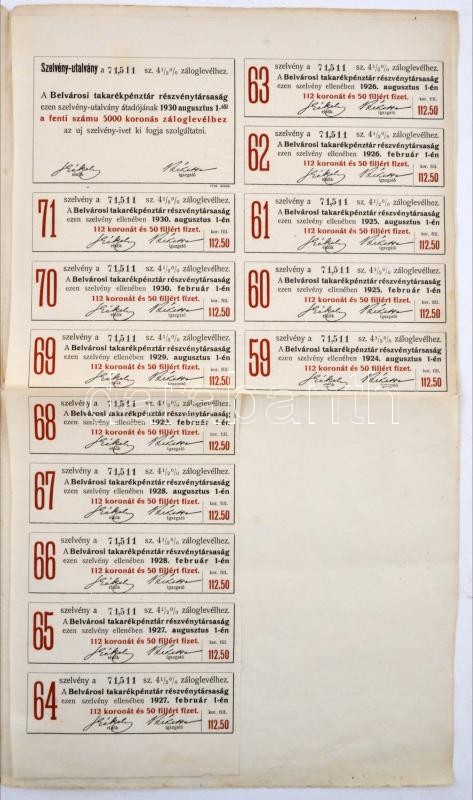 Szelvény-utalvány a 71,511 sz. 4½% záloglevélhez.
A Belvárosi takarékpénztár részvénytársaság
ezen szelvény-utalvány átadójának 1930 augusztus 1-től
a fenti számu 5000 koronás záloglevélhez
az uj szelvény-ivet ki fogja szolgáltatni.
elnök igazgató
71
szelvény a 71,511 sz. 4½% záloglevélhez.
A Belvárosi takarékpénztár részvénytársaság
ezen szelvény ellenében 1930. augusztus 1-én
112 koronát és 50 fillért fizet. kor. fill.
elnök igazgató 112.50
70
szelvény a 71,511 sz. 4½% záloglevélhez.
A Belvárosi takarékpénztár részvénytársaság
ezen szelvény ellenében 1930. február 1-én
112 koronát és 50 fillért fizet. kor. fill.
elnök igazgató 112.50
69
szelvény a 71,511 sz. 4½% záloglevélhez.
A Belvárosi takarékpénztár részvénytársaság
ezen szelvény ellenében 1929. augusztus 1-én
112 koronát és 50 fillért fizet. kor. fill.
elnök igazgató 112.50
68
szelvény a 71,511 sz. 4½% záloglevélhez.
A Belvárosi takarékpénztár részvénytársaság
ezen szelvény ellenében 1929. február 1-én
112 koronát és 50 fillért fizet. kor. fill.
elnök igazgató 112.50
67
szelvény a 71,511 sz. 4½% záloglevélhez.
A Belvárosi takarékpénztár részvénytársaság
ezen szelvény ellenében 1928. augusztus 1-én
112 koronát és 50 fillért fizet. kor. fill.
elnök igazgató 112.50
66
szelvény a 71,511 sz. 4½% záloglevélhez.
A Belvárosi takarékpénztár részvénytársaság
ezen szelvény ellenében 1928. február 1-én
112 koronát és 50 fillért fizet. kor. fill.
elnök igazgató 112.50
65
szelvény a 71,511 sz. 4½% záloglevélhez.
A Belvárosi takarékpénztár részvénytársaság
ezen szelvény ellenében 1927. augusztus 1-én
112 koronát és 50 fillért fizet. kor. fill.
elnök igazgató 112.50
64
szelvény a 71,511 sz. 4½% záloglevélhez.
A Belvárosi takarékpénztár részvénytársaság
ezen szelvény ellenében 1927. február 1-én
112 koronát és 50 fillért fizet. kor. fill.
elnök igazgató 112.50
63
szelvény a 71,511 sz. 4½% záloglevélhez.
A Belvárosi takarékpénztár részvénytársaság
ezen szelvény ellenében 1926. augusztus 1-én
112 koronát és 50 fillért fizet. kor. fill.
elnök igazgató 112.50
62
szelvény a 71,511 sz. 4½% záloglevélhez.
A Belvárosi takarékpénztár részvénytársaság
ezen szelvény ellenében 1926. február 1-én
112 koronát és 50 fillért fizet. kor. fill.
elnök igazgató 112.50
61
szelvény a 71,511 sz. 4½% záloglevélhez.
A Belvárosi takarékpénztár részvénytársaság
ezen szelvény ellenében 1925. augusztus 1-én
112 koronát és 50 fillért fizet. kor. fill.
elnök igazgató 112.50
60
szelvény a 71,511 sz. 4½% záloglevélhez.
A Belvárosi takarékpénztár részvénytársaság
ezen szelvény ellenében 1925. február 1-én
112 koronát és 50 fillért fizet. kor. fill.
elnök igazgató 112.50
59
szelvény a 71,511 sz. 4½% záloglevélhez.
A Belvárosi takarékpénztár részvénytársaság
ezen szelvény ellenében 1924. augusztus 1-én
112 koronát és 50 fillért fizet. kor. fill.
elnök igazgató 112.50
darabanth